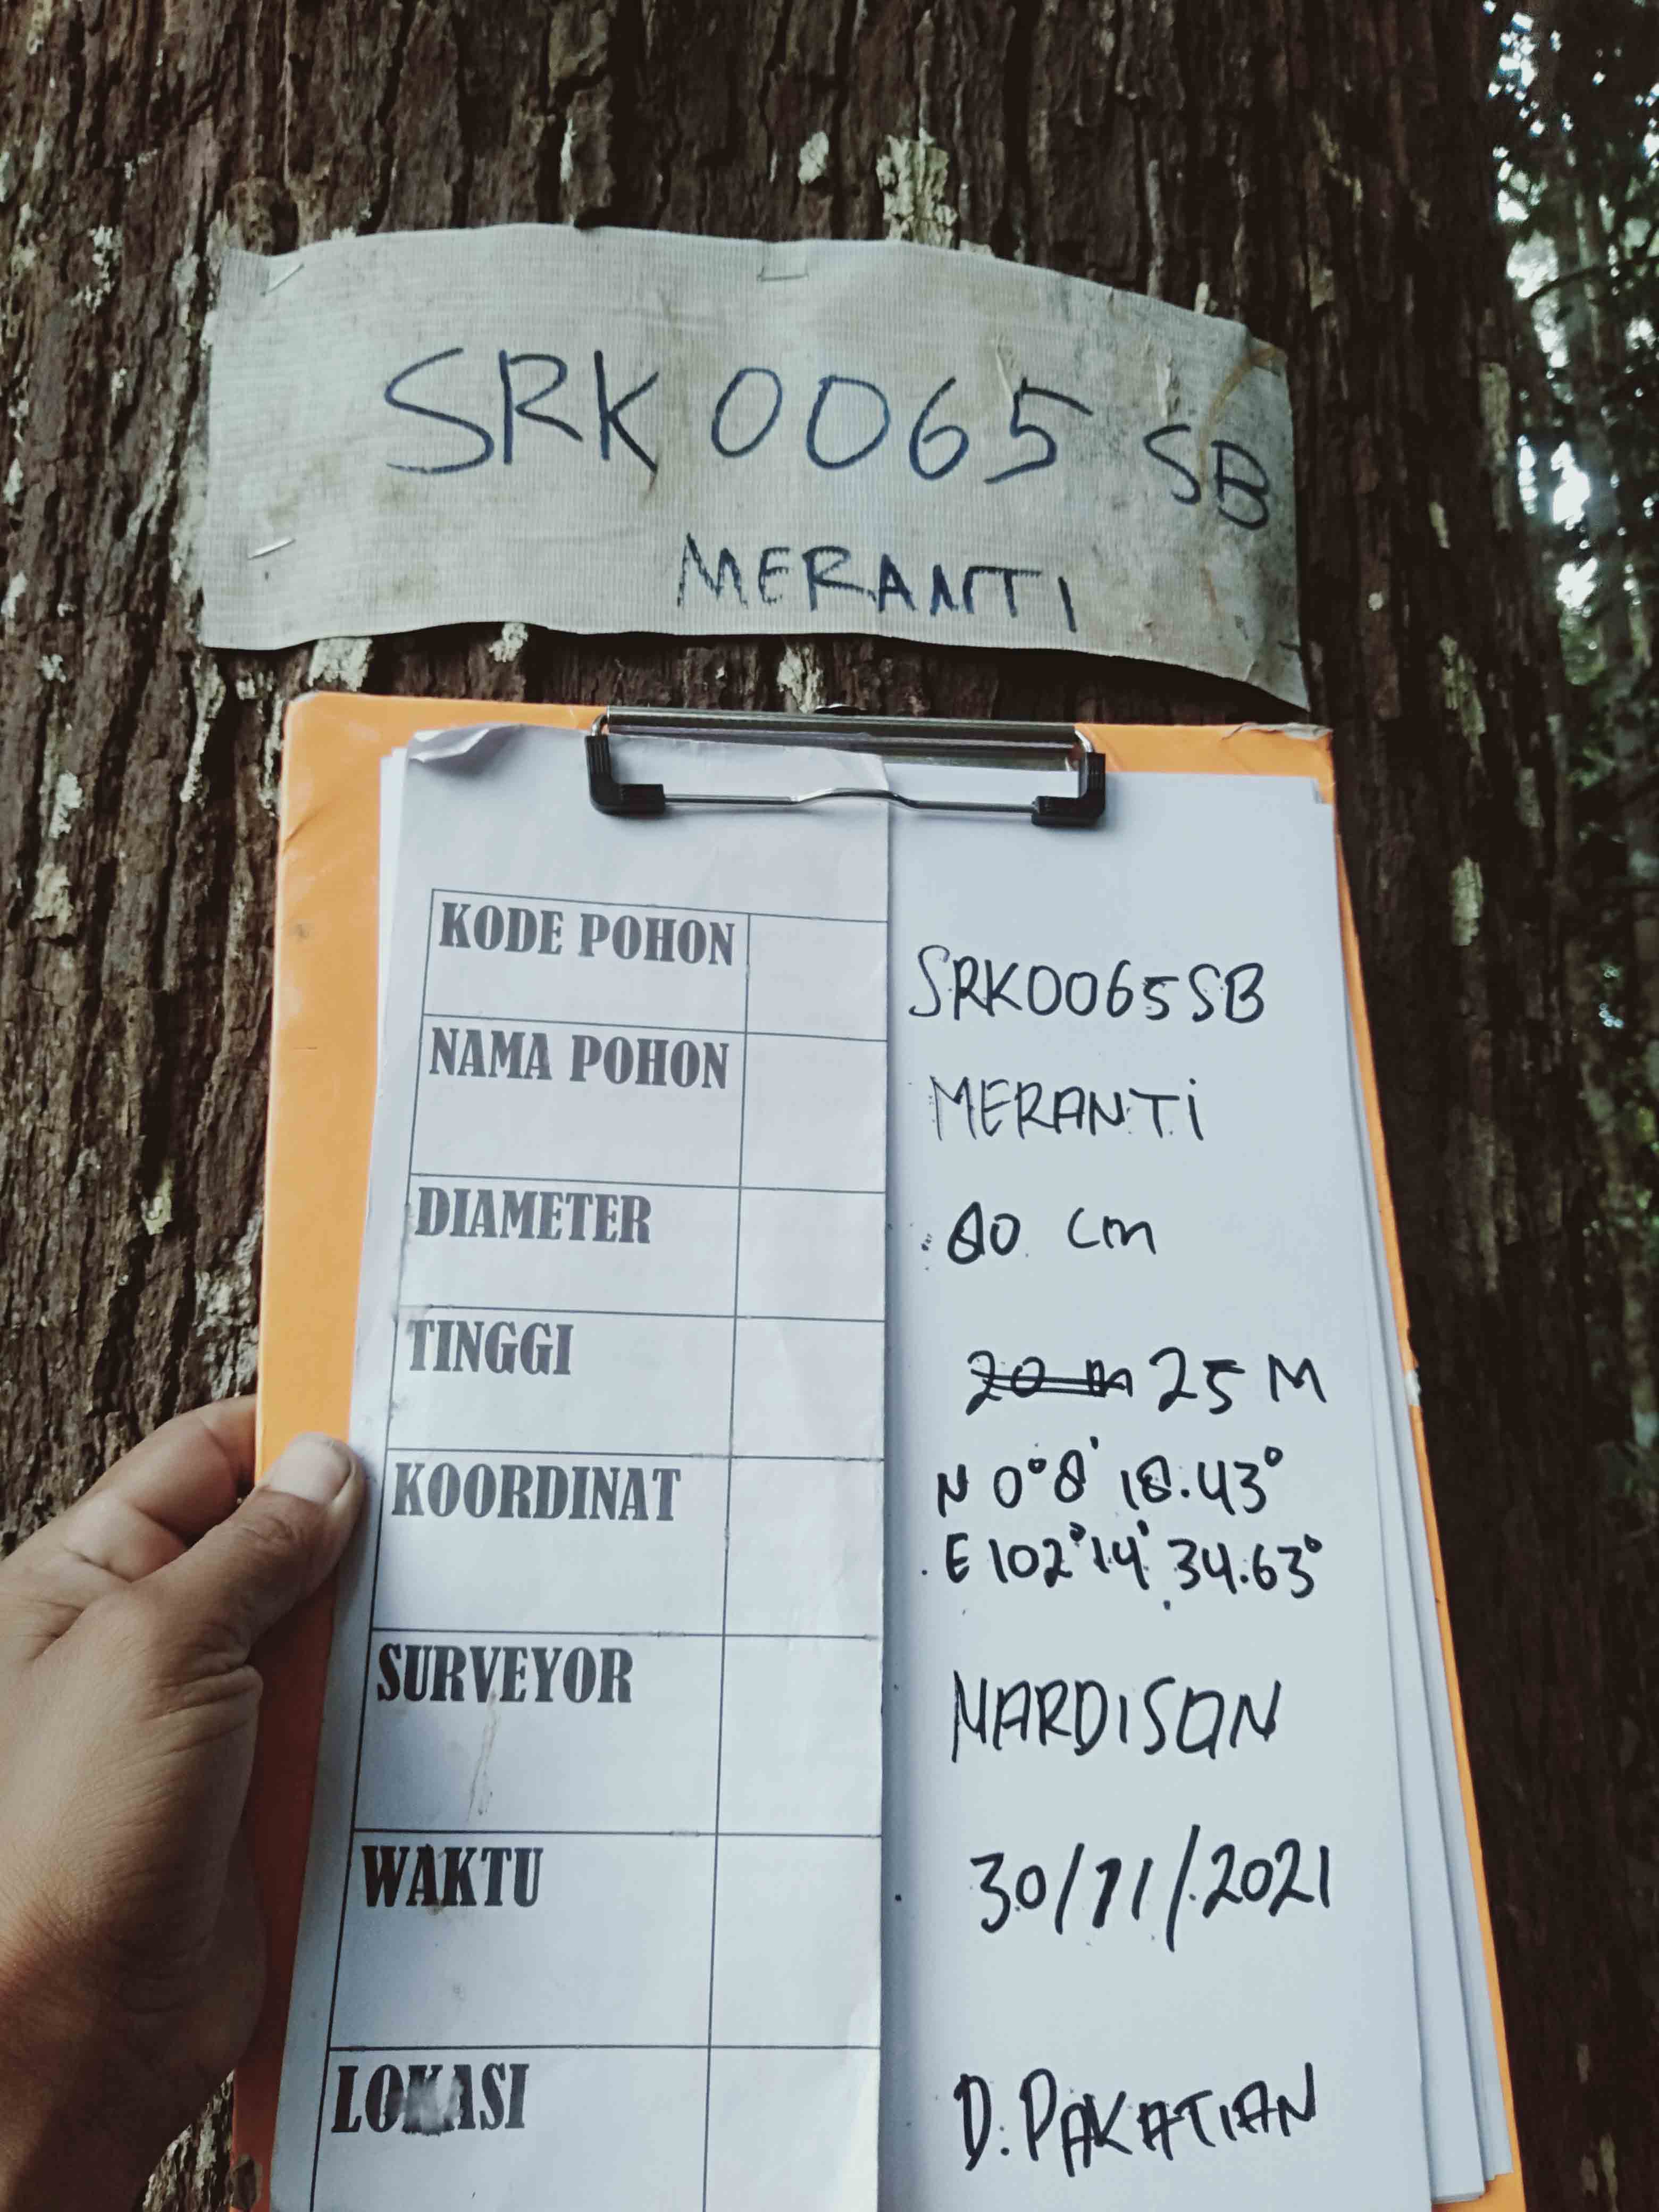 SRK 0065 SB
MERANTI
KODE POHON SRK0065SB
NAMA POHON MERANTi
DIAMETER cm
TINGGI 20 m 25 M
KOORDINAT N 0°8' 18.43°
E 102°14' 34.63°
SURVEYOR NARDISON
WAKTU 30/11/2021
LOKASI D. PAKATIAN